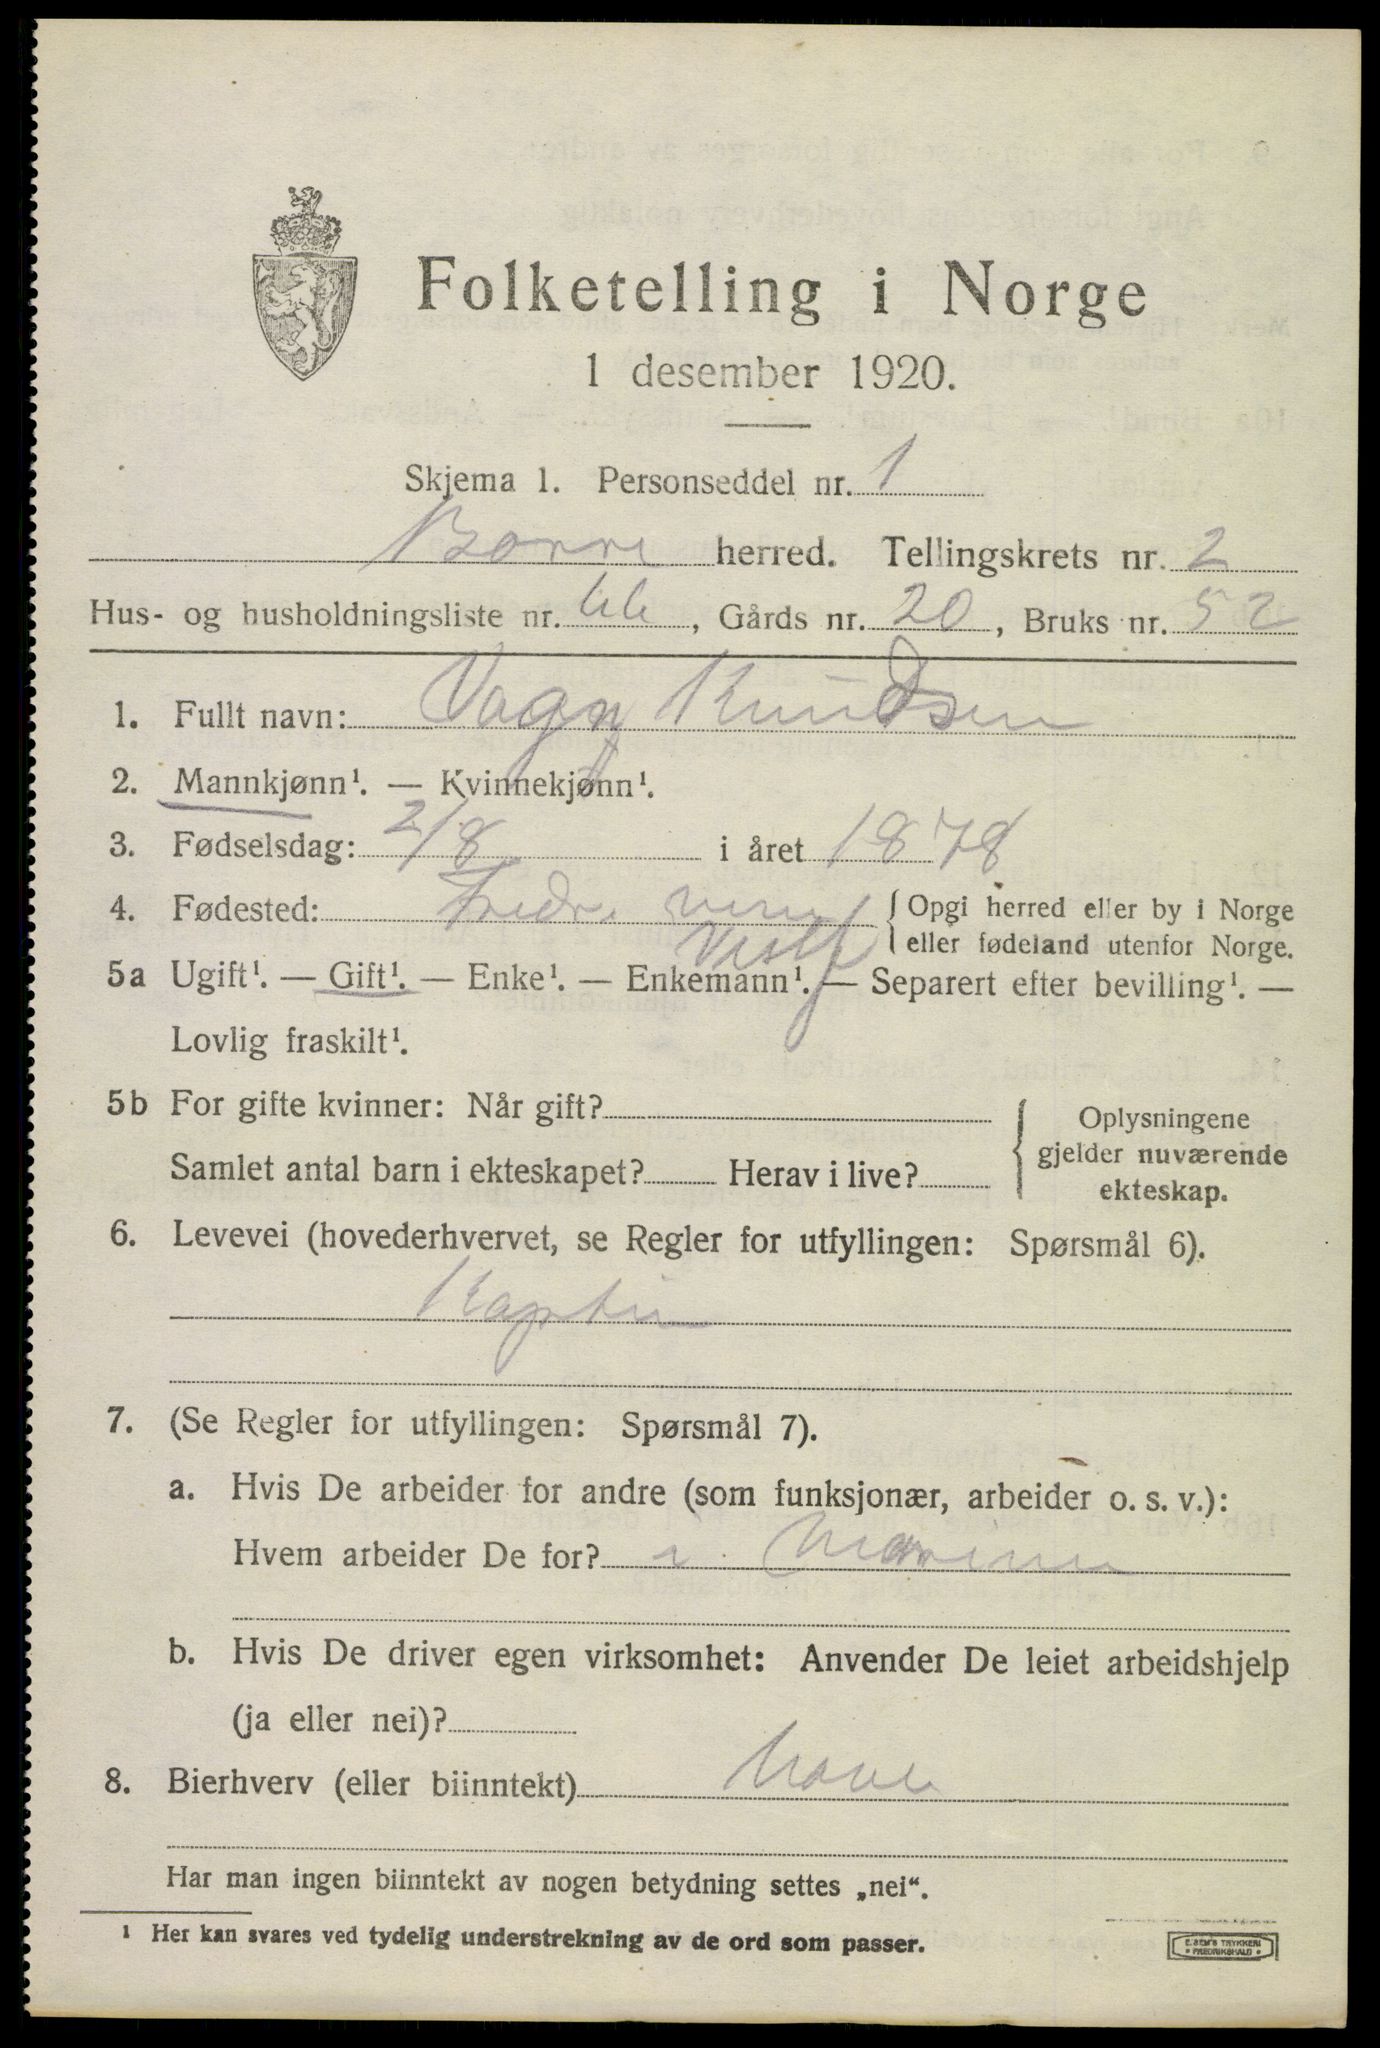 Folketelling i Norge
1 desember 1920.
Skjema 1. Personseddel nr. 1
Borre herred. Tellingskrets nr. 2
Hus- og husholdningsliste nr. 66, Gårds nr. 20, Bruks nr. 52
1. Fullt navn: Vagn Knudsen
2. Mannkjønn¹. — Kvinnekjønn¹.
3. Fødselsdag: 2/8 i året 1878
4. Fødested: { Opgi herred eller by i Norge
eller fødeland utenfor Norge.
5a Ugift¹. — Gift¹. — Enke¹. — Enkemann¹. — Separert efter bevilling¹. —
Lovlig fraskilt¹.
5b For gifte kvinner: Når gift?
Samlet antal barn i ekteskapet? Herav i live?
{ Oplysningene
gjelder nuværende
ekteskap.
6. Levevei (hovederhvervet, se Regler for utfyllingen: Spørsmål 6).
Kaptein
7. (Se Regler for utfyllingen: Spørsmål 7).
a. Hvis De arbeider for andre (som funksjonær, arbeider o. s. v.):
Hvem arbeider De for? i Marinen
b. Hvis De driver egen virksomhet: Anvender De leiet arbeidshjelp
(ja eller nei)?
8. Bierhverv (eller biinntekt)
Har man ingen biinntekt av nogen betydning settes „nei“.
¹ Her kan svares ved tydelig understrekning av de ord som passer.
E. SEM'S TRYKKERI
• FREDRIKSHALD •